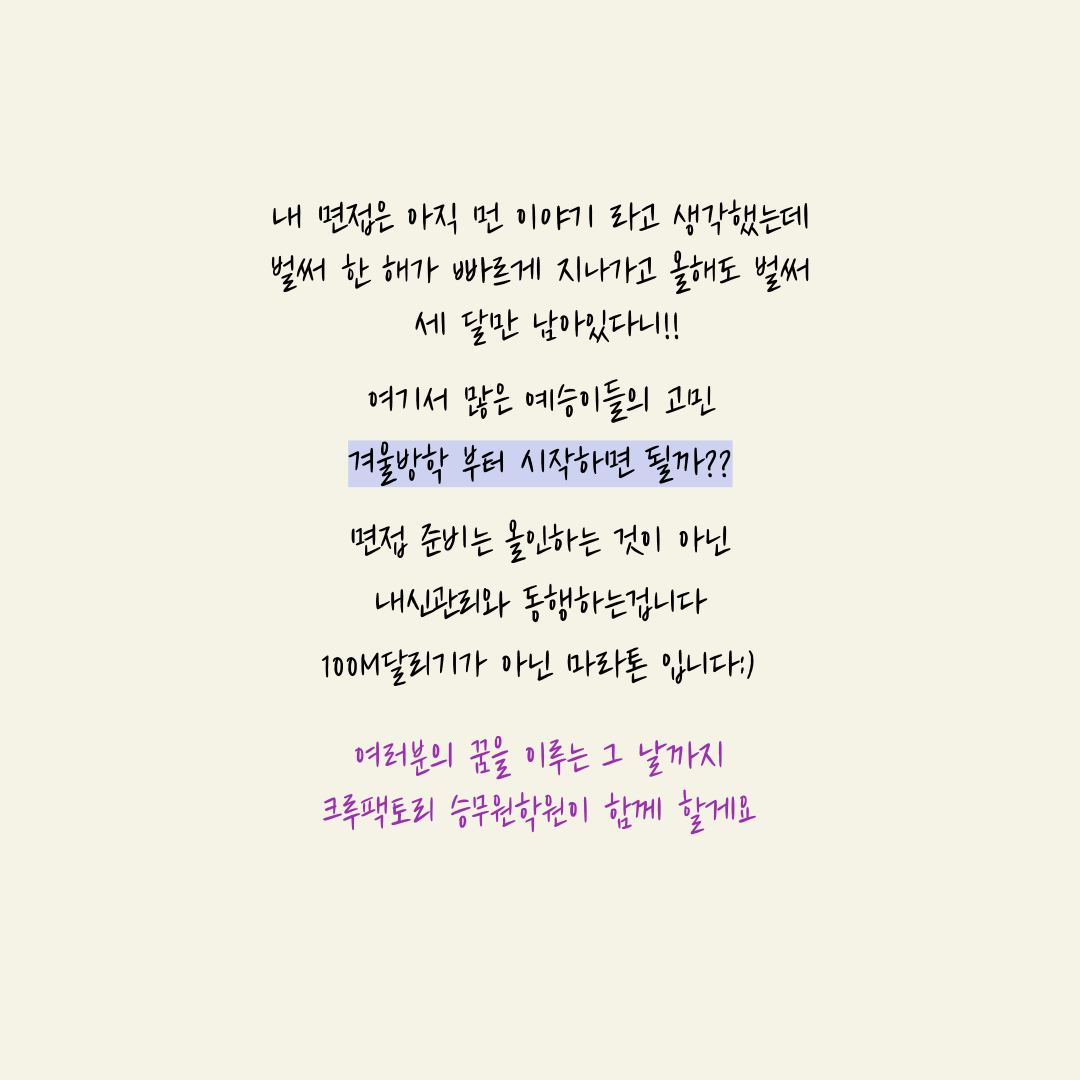 내 면접은 아직 먼 이야기 라고 생각했는데
벌써 한 해가 빠르게 지나가고 올해도 벌써
세 달만 남아있다니!!
여기서 많은 예승이들의 고민
겨울방학 부터 시작하면 될까??
면접 준비는 올인하는 것이 아닌
내신관리와 동행하는겁니다
100M달리기가 아닌 마라톤 입니다:)
여러분의 꿈을 이루는 그 날까지
크루팩토리 승무원학원이 함께 할게요